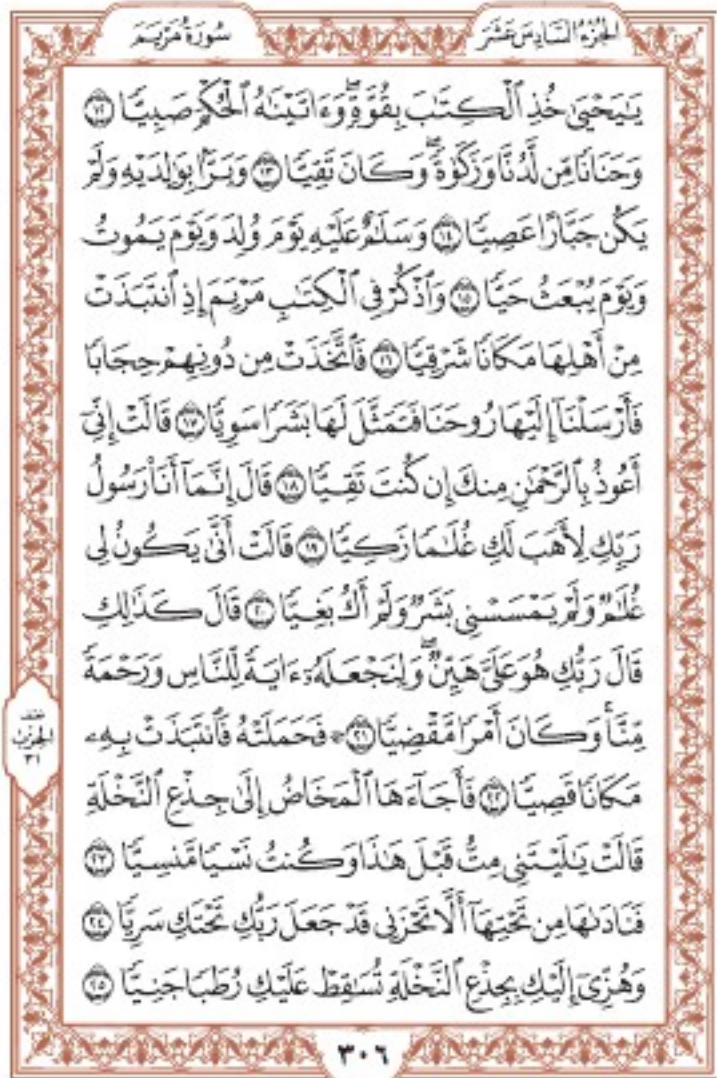 سُورَةُ مَرْيَمَ
الجُزْءُ السَّادِسَ عَشَرَ
يَٰيَحْيَىٰ خُذِ ٱلْكِتَٰبَ بِقُوَّةٍۖ وَءَاتَيْنَٰهُ ٱلْحُكْمَ صَبِيًّا ١٢
وَحَنَانًا مِّن لَّدُنَّا وَزَكَوٰةًۖ وَكَانَ تَقِيًّا ١٣ وَبَرًّۢا بِوَٰلِدَيْهِ وَلَمْ
يَكُن جَبَّارًا عَصِيًّا ١٤ وَسَلَٰمٌ عَلَيْهِ يَوْمَ وُلِدَ وَيَوْمَ يَمُوتُ
وَيَوْمَ يُبْعَثُ حَيًّا ١٥ وَٱذْكُرْ فِى ٱلْكِتَٰبِ مَرْيَمَ إِذِ ٱنتَبَذَتْ
مِنْ أَهْلِهَا مَكَانًا شَرْقِيًّا ١٦ فَٱتَّخَذَتْ مِن دُونِهِمْ حِجَابًا
فَأَرْسَلْنَآ إِلَيْهَا رُوحَنَا فَتَمَثَّلَ لَهَا بَشَرًا سَوِيًّا ١٧ قَالَتْ إِنِّىٓ
أَعُوذُ بِٱلرَّحْمَٰنِ مِنكَ إِن كُنتَ تَقِيًّا ١٨ قَالَ إِنَّمَآ أَنَا۠ رَسُولُ
رَبِّكِ لِأَهَبَ لَكِ غُلَٰمًا زَكِيًّا ١٩ قَالَتْ أَنَّىٰ يَكُونُ لِى
غُلَٰمٌ وَلَمْ يَمْسَسْنِى بَشَرٌ وَلَمْ أَكُ بَغِيًّا ٢٠ قَالَ كَذَٰلِكِ
قَالَ رَبُّكِ هُوَ عَلَىَّ هَيِّنٌۖ وَلِنَجْعَلَهُۥٓ ءَايَةً لِّلنَّاسِ وَرَحْمَةً
مِّنَّاۚ وَكَانَ أَمْرًا مَّقْضِيًّا ٢١ ۞ فَحَمَلَتْهُ فَٱنتَبَذَتْ بِهِۦ
مَكَانًا قَصِيًّا ٢٢ فَأَجَآءَهَا ٱلْمَخَاضُ إِلَىٰ جِذْعِ ٱلنَّخْلَةِ
قَالَتْ يَٰلَيْتَنِى مِتُّ قَبْلَ هَٰذَا وَكُنتُ نَسْيًا مَّنسِيًّا ٢٣
فَنَادَىٰهَا مِن تَحْتِهَآ أَلَّا تَحْزَنِى قَدْ جَعَلَ رَبُّكِ تَحْتَكِ سَرِيًّا ٢٤
وَهُزِّىٓ إِلَيْكِ بِجِذْعِ ٱلنَّخْلَةِ تُسَٰقِطْ عَلَيْكِ رُطَبًا جَنِيًّا ٢٥
الحِزْب
٣١
٣٠٦